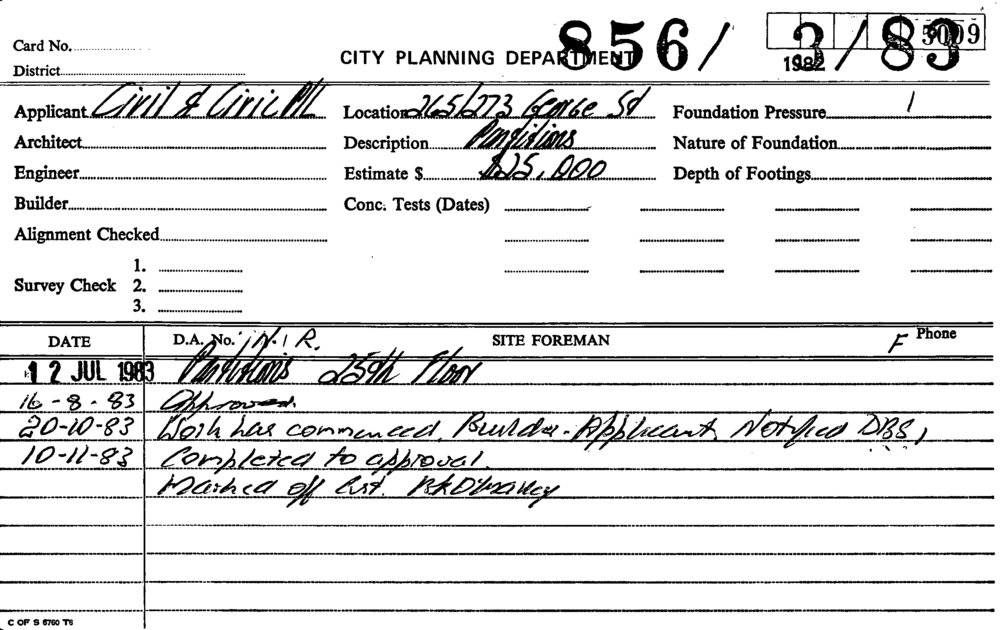 856/ 3/83
5009
1982
Card No.
CITY PLANNING DEPARTMENT
District
Applicant Civil & Civic P/L Location 265/273 George St Foundation Pressure /
Architect Description Partitions Nature of Foundation
Engineer Estimate $ $25,000 Depth of Footings
Builder Conc. Tests (Dates)
Alignment Checked
1.
Survey Check 2.
3.
DATE D.A. No. N.I.R. SITE FOREMAN F Phone
12 JUL 1983 Partitions 25th Floor
16-8-83 Approved
20-10-83 Work has commenced. Builder-Applicant Notified DBS,
10-11-83 Completed to approval.
Marked off list.
C OF S 6760 T6